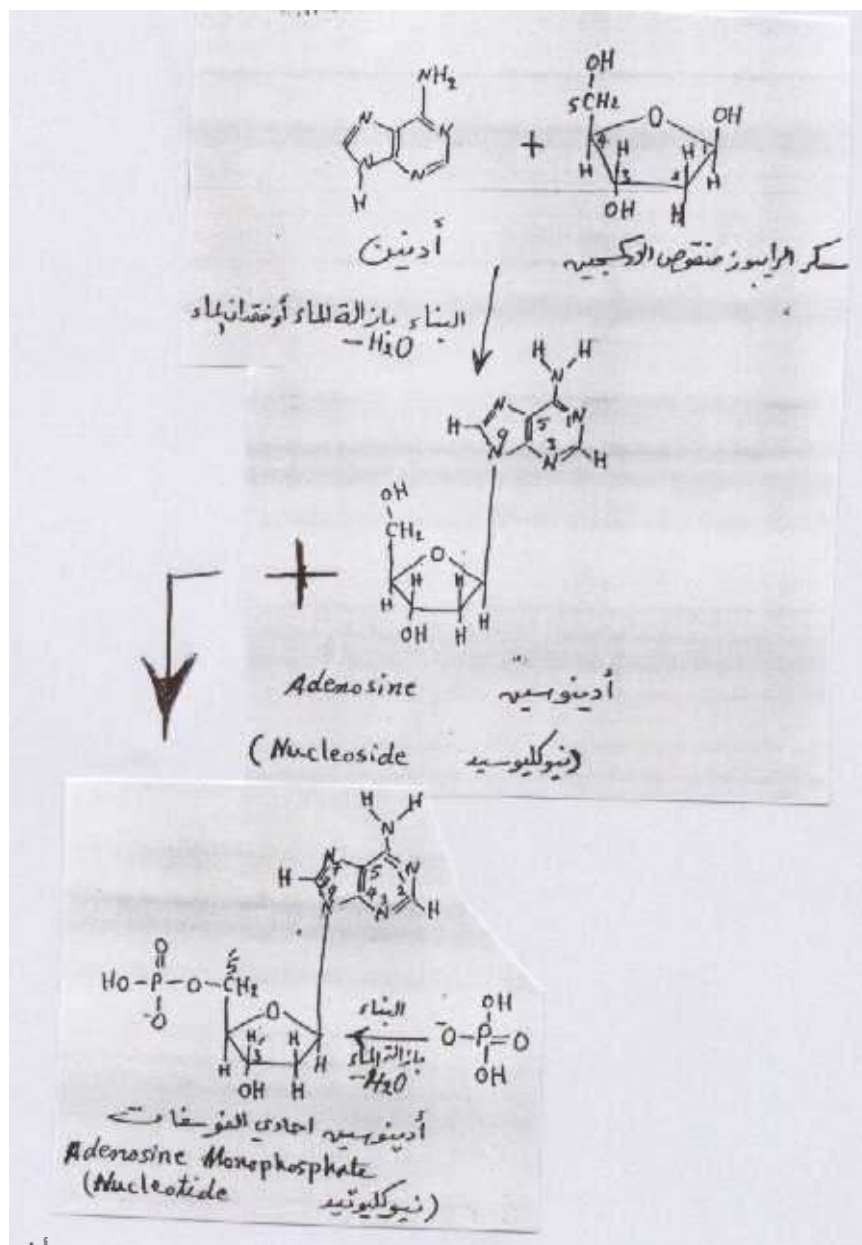 NH₂
OH
5CH₂
O
OH
N
N
N
N
H
+
4
H
H
1
H
3
2
H
OH
H
أدينين
سكر الرايبوز منقوص الاوكسجين
البناء بازالة الماء أو فقدان الماء
-H₂O
H H
N
N
N
H
5
1
9
3
N
N
H
OH
CH₂
O
H
H
H
H
OH
H
+
Adenosine أدينوسين
(Nucleoside نيوكليوسيد)
H H
N
N
N
H
7
5
8
9
4
3
2
N
N
H
O
HO-P-O-CH₂
5
⁻O
O
H
H
H
3
H
OH
H
البناء
بازالة الماء
-H₂O
OH
⁻O-P=O
OH
أدينوسين احادي الفوسفات
Adenosine Monophosphate
(Nucleotide نيوكليوتيد)